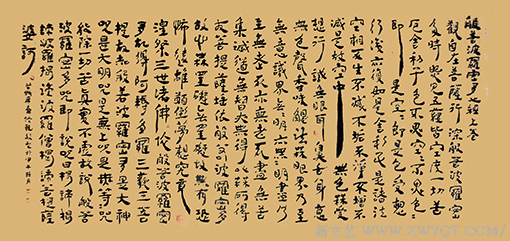 般若波羅蜜多心經
觀自在菩薩行深般若波羅蜜
多時照見五蘊皆空度一切苦
厄舍利子色不異空空不異色色
即是空空即是色受想
行識亦復如是舍利子是諸法
空相不生不滅不垢不淨不增不
減是故空中無色無受
想行識無眼耳鼻舌身意
無色聲香味觸法無眼界乃至
無意識界無無明亦無無明盡乃
至無老死亦無老死盡無苦
集滅道無智亦無得以無所得
故菩提薩埵依般若波羅蜜多
故心無罣礙無罣礙故無有恐
怖遠離顛倒夢想究竟
涅槃三世諸佛依般若波羅蜜
多故得阿耨多羅三藐三菩
提故知般若波羅蜜多是大神
咒是大明咒是無上咒是無等等咒
能除一切苦真實不虛故說般若
波羅蜜多咒即說咒曰揭諦揭
諦波羅揭諦波羅僧揭諦菩提薩
婆訶
WWW.XWYGT.COM